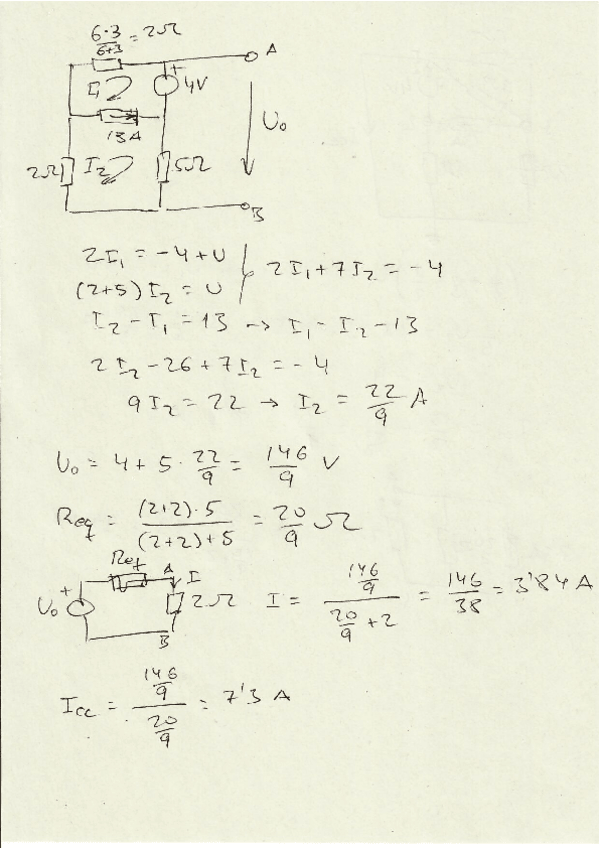 6·3/6+3 = 2Ω
A
I₁
+
4V
13A
U₀
2Ω
I₂
5Ω
B
2I₁ = -4+U
2I₁+7I₂ = -4
(2+5)I₂ = U
I₂-I₁ = 13 → I₁-I₂-13
2I₂-26+7I₂ = -4
9I₂ = 22 → I₂ = 22/9 A
U₀ = 4+5·22/9 = 146/9 V
Req = (2+2)·5/(2+2)+5 = 20/9 Ω
Req
A
I
+
U₀
2Ω
B
I = 146/9 / 20/9+2 = 146/38 = 3'84 A
Icc = 146/9 / 20/9 = 7'3 A